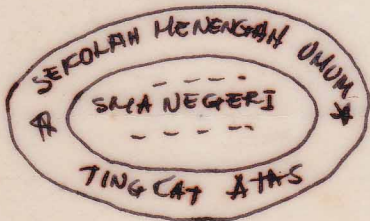 SEKOLAH MENENGAH UMUM
SMA NEGERI
TINGCAT ATAS